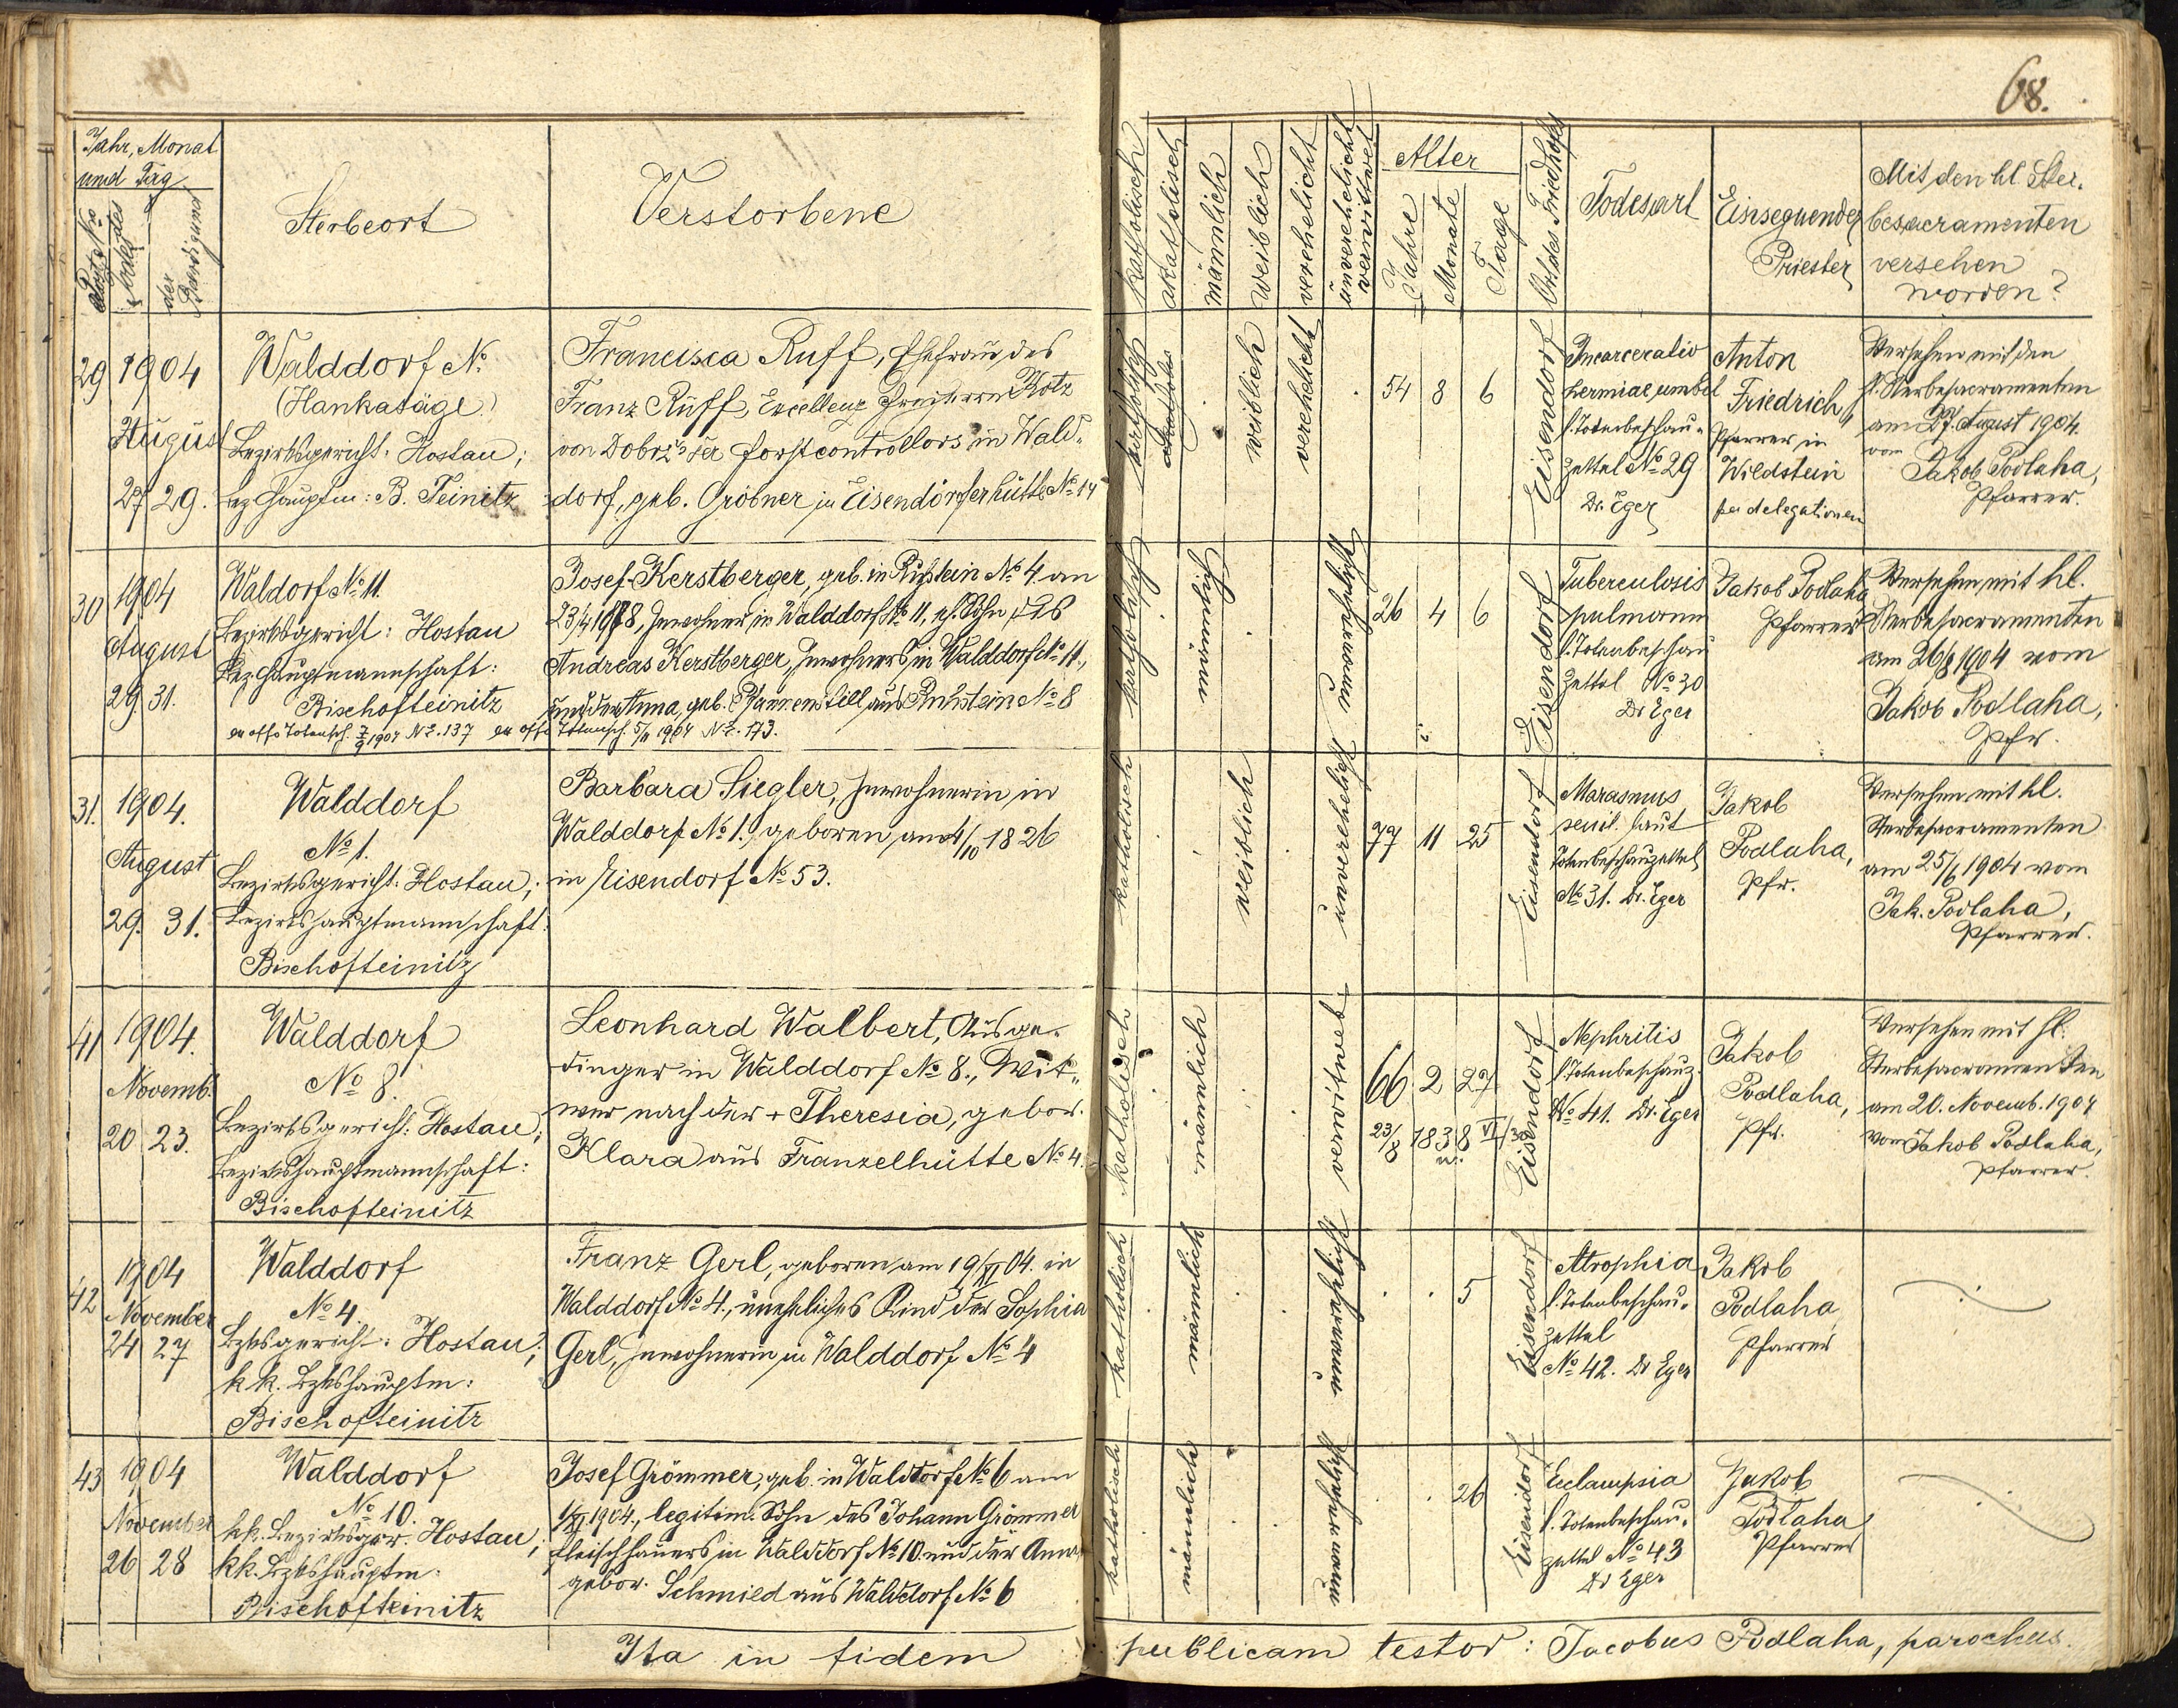 68.
Jahr, Monat
und Tag
Post No
des
der Beerdigung
Sterbeort
Verstorbene
katholisch
akatholisch
männlich
weiblich
verehelicht
unverehelicht
verwitwet
Alter
Jahre
Monate
Tage
Ort des Friedhofes
Todesart
Einsegnender
Priester
Mit den hl. Ster-
besacramenten
versehen
worden?
29 1904
August
27 29.
Walddorf No
(Hankasäge)
Bezirksgericht: Hostau;
Bez. Hauptm: B. Teinitz
Francisca Ruff, Ehefrau des
Franz Ruff, Excellenz Freiherrn Kotz
von Dobrz'scher Forstcontrollors in Wald-
dorf, geb. Gröbner in Eisendorferhütte No 14
katholisch
weiblich
verehelicht
54 8 6
Eisendorf
Incarceratio
herniae umbil
l. Totenbeschau-
zettel No 29
Dr. Eger
Anton
Friedrich,
Pfarrer in
Wildstein
per delegationem
Versehen mit den
hl. Sterbesacramenten
am 27. August 1904.
vom
Jakob Podlaha,
Pfarrer.
30 1904
August
29. 31.
Waldorf No 11.
Bezirksgericht: Hostau
Bez. Hauptmannschaft:
Bischofteinitz
ex offo Totensch. 7/9 1904 No. 137 ex offo Totensch. 5/11 1904 No. 173.
Josef Kerstberger, geb. in Ruhstein No 4 an
23/4 1878, Inwohner in Walddorf No 11, eh. Sohn des
Andreas Kerstberger, Inwohners in Walddorf No 11.,
und der Anna, geb. Pfannenstill aus Ruhstein No 8
katholisch
männlich
unverehelicht
26 4 6
Eisendorf
Tuberculosis
pulmonum
l. Totenbeschau
Zettel No 30
Dr Eger
Jakob Podlaha
Pfarrer
Versehen mit hl.
Sterbesacramenten
am 26/8 1904 vom
Jakob Podlaha,
Pfr.
31. 1904.
August
29. 31.
Walddorf
No 1.
Bezirksgericht: Hostau;
Bezirkshauptmannschaft:
Bischofteinitz
Barbara Siegler, Inwohnerin in
Walddorf No 1., geboren am 4/10 1826
in Eisendorf No 53.
katholisch
weiblich
unverehelicht
77 11 25
Eisendorf
Marasmus
senil. laut
Totenbeschauzettel
No 31. Dr. Eger
Jakob
Podlaha,
Pfr.
Versehen mit hl.
Sterbesacramenten
am 25/6 1904 vom
Jak. Podlaha,
Pfarrer.
41 1904.
Novemb.
20 23.
Walddorf
No 8.
Bezirksgericht: Hostau;
Bezirkshauptmannschaft:
Bischofteinitz
Leonhard Walbert, Ausge-
dinger in Walddorf No 8., Wit-
wer nach der + Theresia, gebor.
Klara aus Franzelhütte No 4.
katholisch
männlich
verwitwet
66 2 27
23/8 1838
Eisendorf
Nephritis
l. Totenbeschauz.
No 41. Dr. Eger
Jakob
Podlaha,
Pfr.
Versehen mit hl.
Sterbesacramenten
am 20. Novemb. 1904
vom Jakob Podlaha,
Pfarrer.
42 1904
November
24 27
Walddorf
No 4.
Bzksgericht: Hostau;
k.k. Bzkshauptm:
Bischofteinitz
Franz Gerl, geboren am 19/XI 04. in
Walddorf No 4., uneheliches Kind der Sophia
Gerl, Inwohnerin in Walddorf No 4
katholisch
männlich
unverehelicht
5
Eisendorf
Atrophia
l. Totenbeschau-
zettel
No 42. Dr Eger
Jakob
Podlaha
Pfarrer
43 1904
November
26 28
Walddorf
No 10.
k.k. Bezirksger. Hostau;
k.k. Bzkshauptm:
Bischofteinitz
Josef Grömmer, geb. in Walddorf No 6 am
1/XI 1904., legitim. Sohn des Johann Grömmer
Fleischhauers in Walddorf No 10. und der Anna
gebor. Schmied aus Walddorf No 6
katholisch
männlich
unverehelicht
26
Eisendorf
Eclampsia
l. Totenbeschau-
zettel No 43
Dr Eger
Jakob
Podlaha
Pfarrer
Ita in fidem publicam testor: Jacobus Podlaha, parochus.